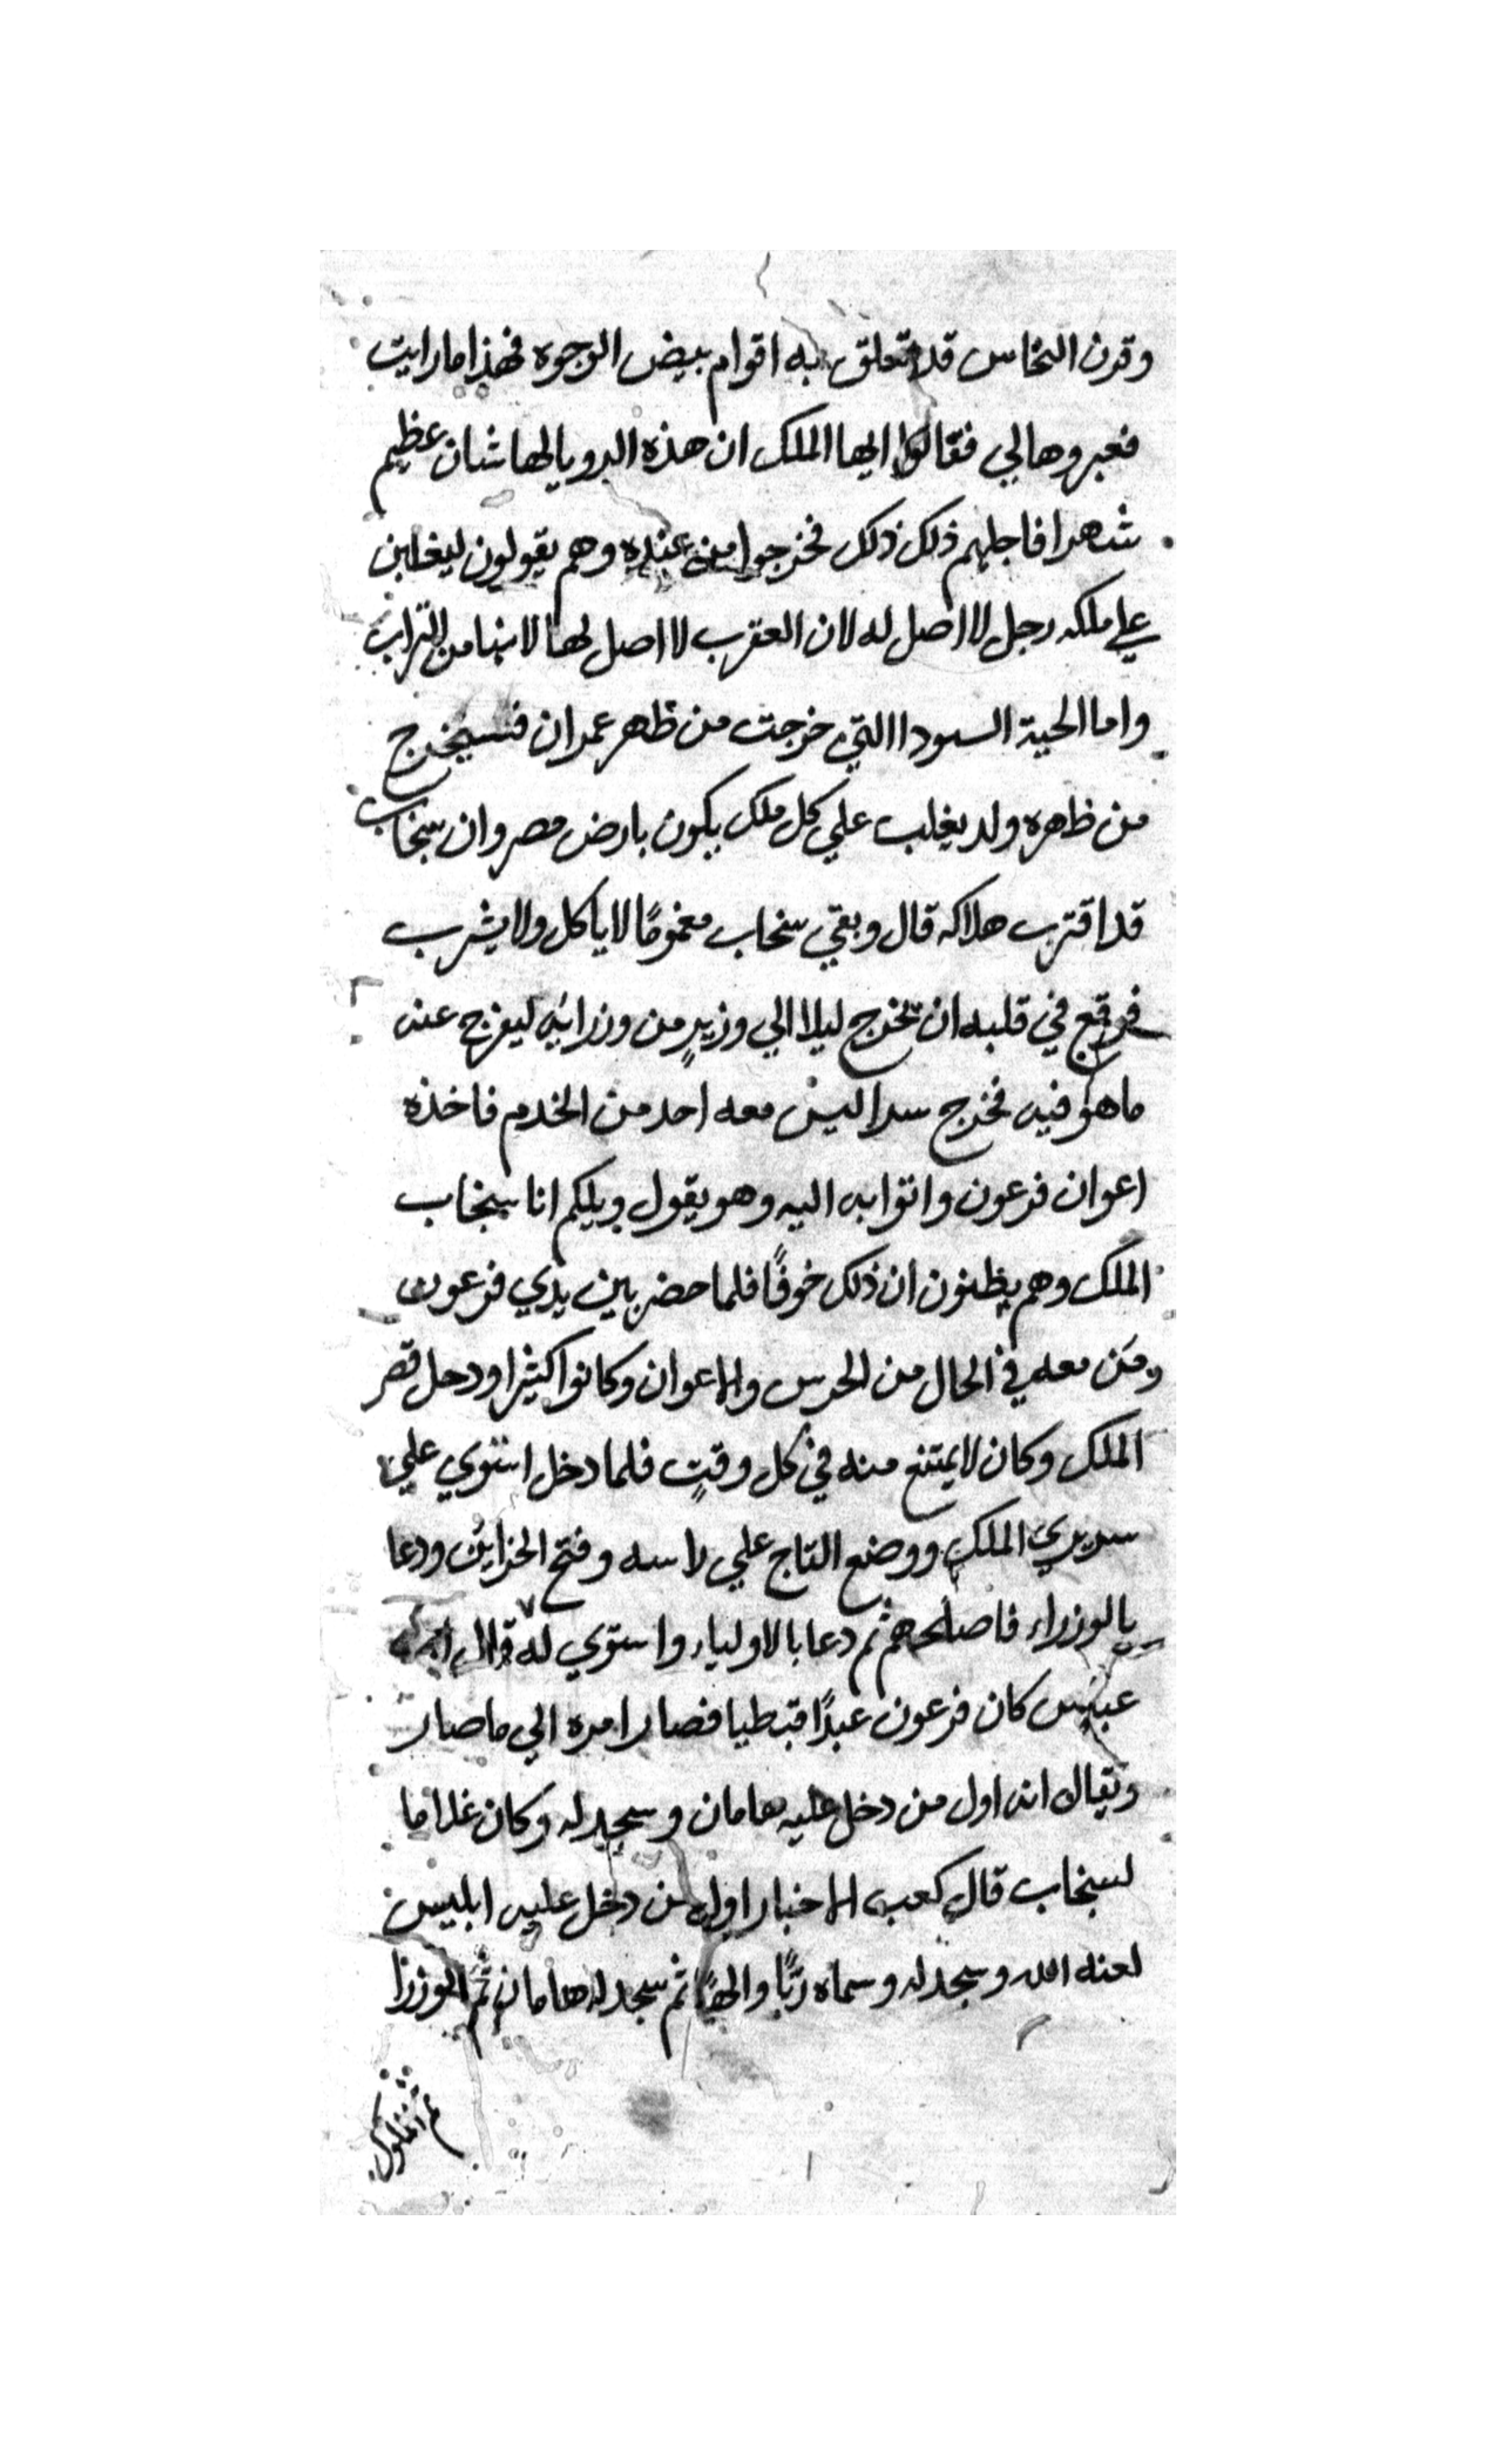 وقرن النخاس قد تعلق به اقوام بيض الوجوه فهذا ما رايت
فعبروها لي فقالوا ايها الملك ان هذه الرويا لها شان عظيم
شهرا فاجلهم ذلك ذلك فخرجوا من عنده وهم يقولون ليغلبن
علي ملكه رجل لا اصل له لان العقرب لا اصل لها لانها من التراب
واما الحية السودا التي خرجت من ظهر عمران فسيخرج
من ظهره ولد يغلب علي كل ملك يكون بارض مصر وان سنجاب
قد اقترب هلاكه قال وبقي سنجاب مغمومًا لا ياكل ولا يشرب
فوقع في قلبه ان يخرج ليلا الي وزيرٍ من وزرائه ليفرج عنه
ما هو فيه فخرج سرا ليس معه احد من الخدم فاخذه
اعوان فرعون واتوا به اليه وهو يقول ويلكم انا سنجاب
الملك وهم يظنون ان ذلك خوفًا فلما حضر بين يدي فرعون
ومن معه في الحال من الحرس والاعوان وكانوا كثيرا ودخل قصر
الملك وكان لا يمتنع منه في كل وقتٍ فلما دخل استوي علي
سرير الملك ووضع التاج علي راسه وفتح الخزاين ودعا
بالوزراء فاصلحهم ثم دعا بالاولياء واستوي له قال ابن
عباس كان فرعون عبدًا قبطيا فصار امره الي ما صار
ويقال انه اول من دخل عليه هامان وسجد له وكان غلاما
لسنجاب قال كعب الاحبار اول من دخل عليه ابليس
لعنه الله وسجد له وسماه ربًا والهًا ثم سجد له هامان ثم الوزرا
ثم الملوك